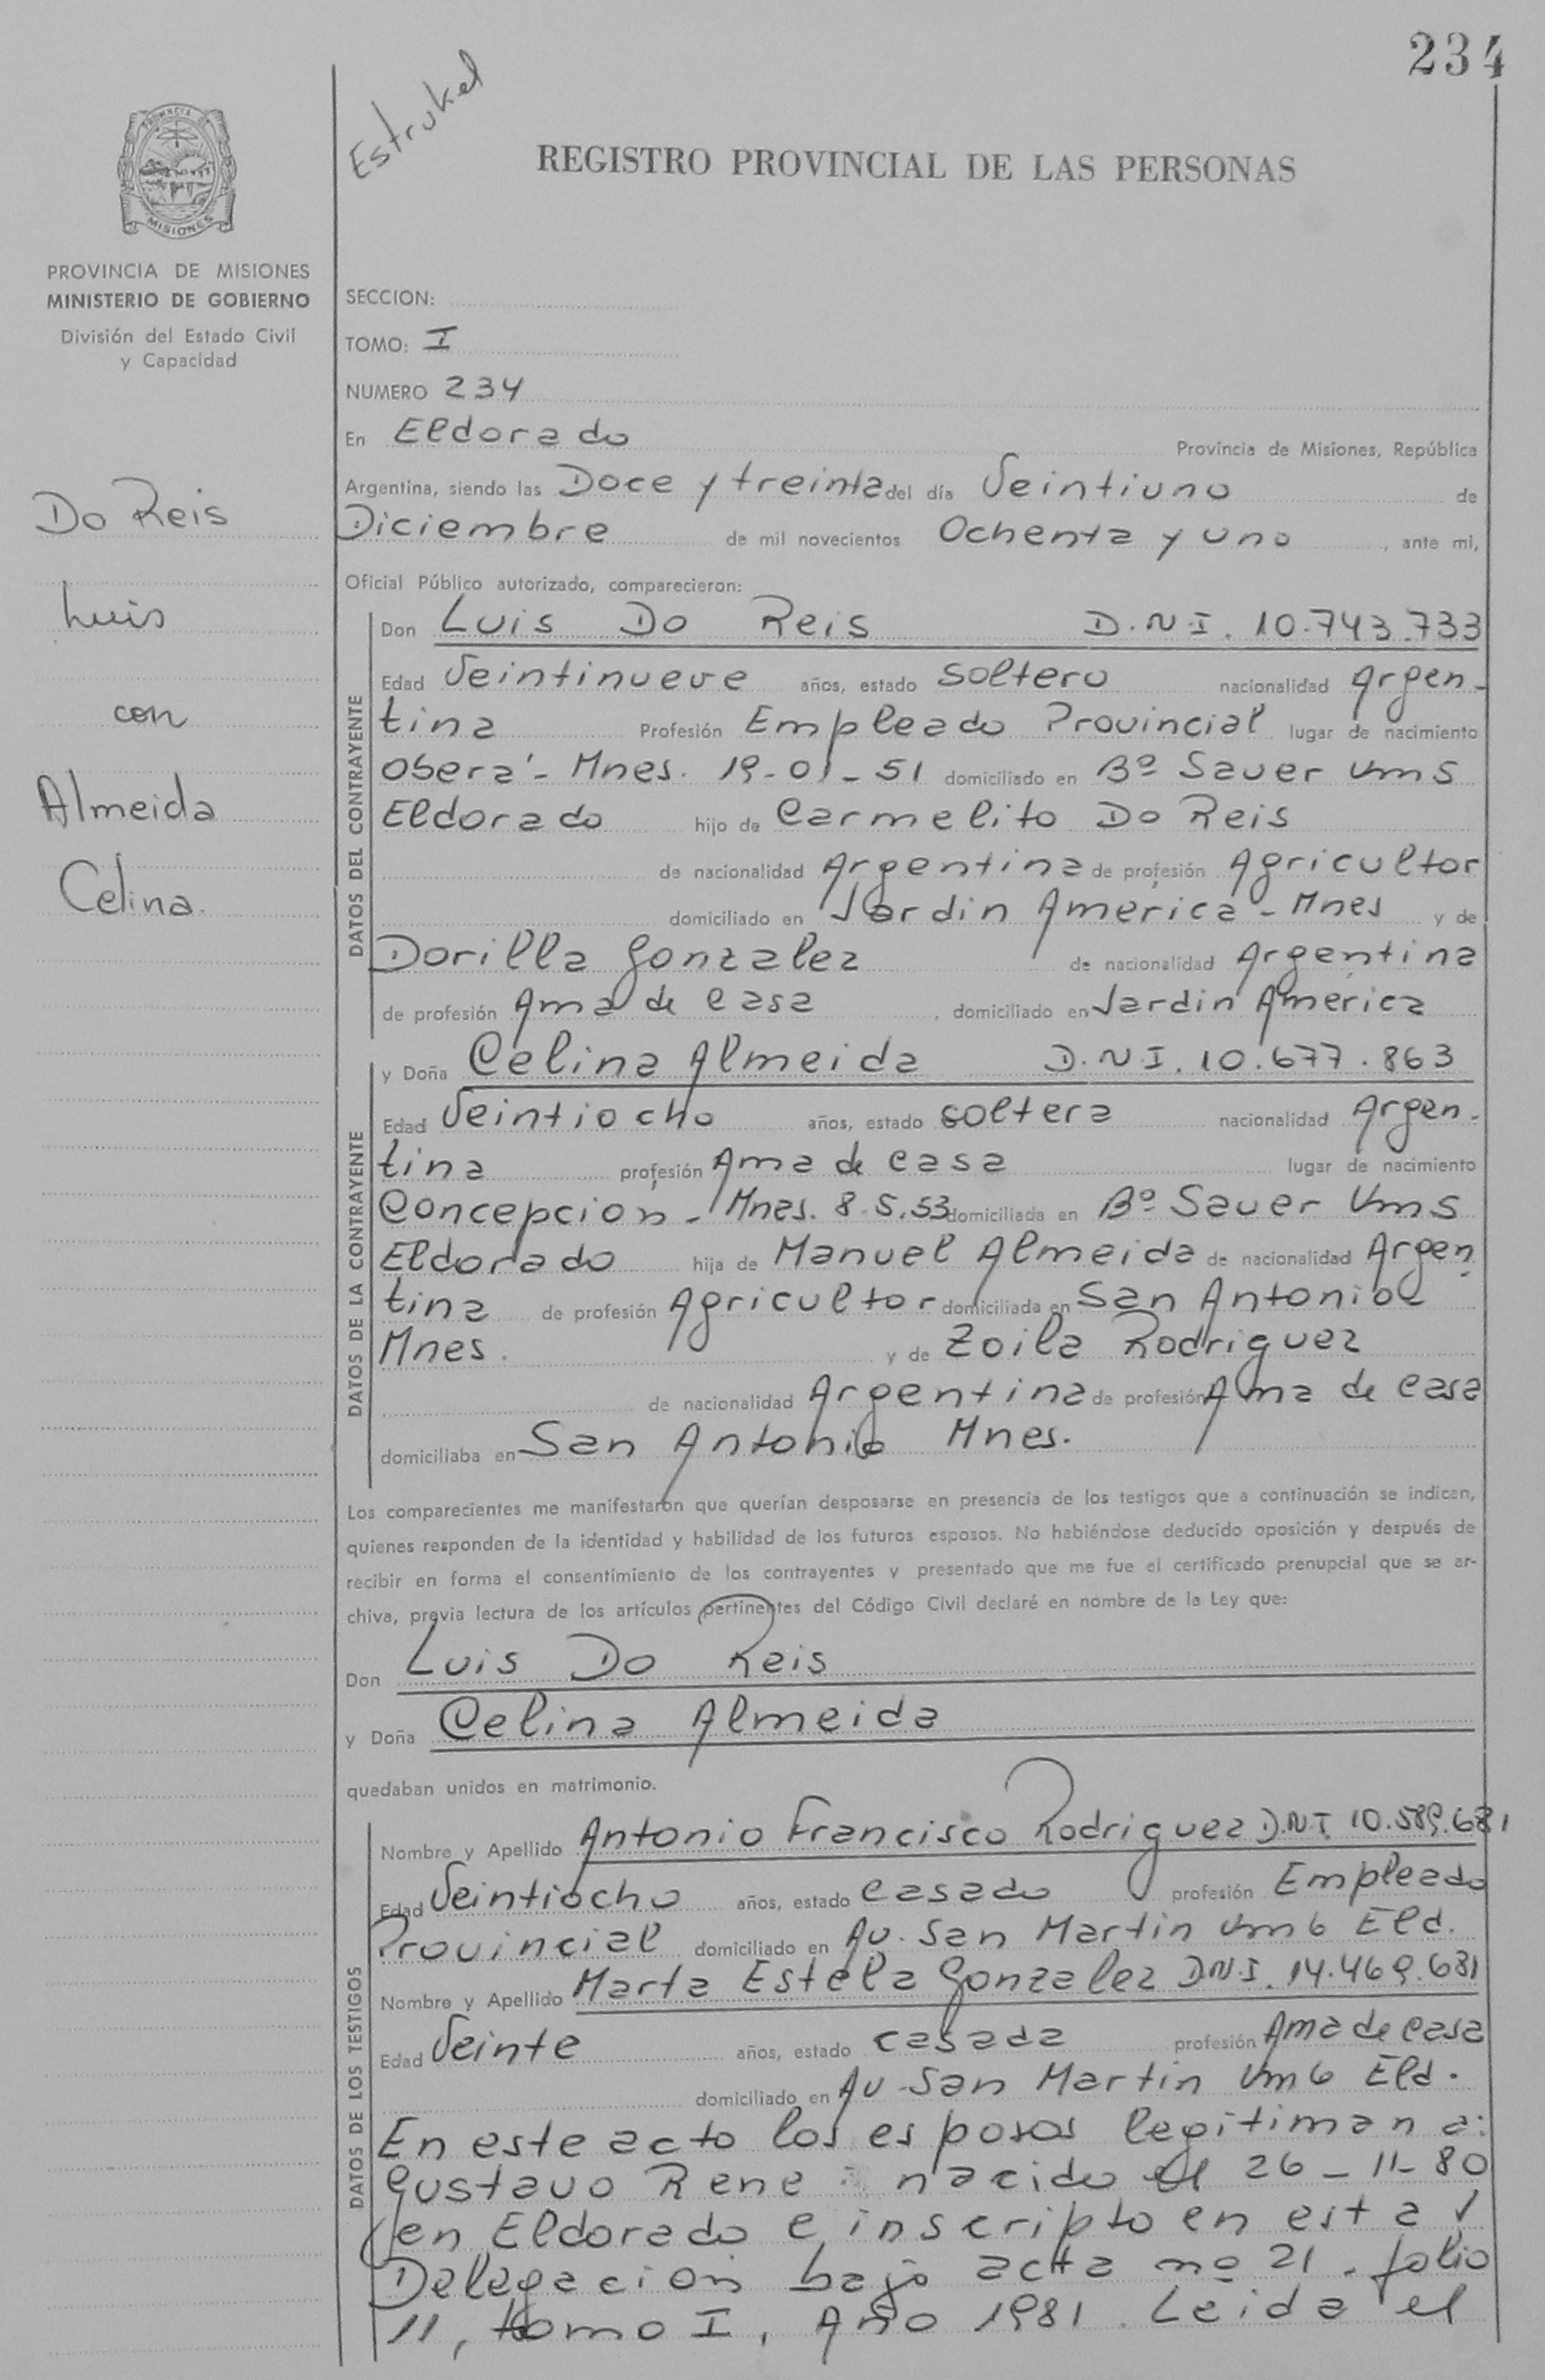 234
Estrukel
REGISTRO PROVINCIAL DE LAS PERSONAS
PROVINCIA DE MISIONES
PROVINCIA DE MISIONES
MINISTERIO DE GOBIERNO
División del Estado Civil
y Capacidad
SECCION:
TOMO: I
NUMERO 234
En Eldorado Provincia de Misiones, República
Argentina, siendo las Doce y treinta del día Veintiuno de
Diciembre de mil novecientos Ochenta y uno, ante mi,
Oficial Público autorizado, comparecieron:
Do Reis
Luis
con
Almeida
Celina.
DATOS DEL CONTRAYENTE
Don Luis Do Reis D.N.I. 10.743.733
Edad Veintinueve años, estado soltero nacionalidad Argen-
tina Profesión Empleado Provincial lugar de nacimiento
Oberá - Mnes. 19-01-51 domiciliado en Bº Sauer Km 5
Eldorado hijo de Carmelito Do Reis
de nacionalidad Argentina de profesión Agricultor
domiciliado en Jardín América - Mnes y de
Dorilla Gonzalez de nacionalidad Argentina
de profesión Ama de casa, domiciliado en Jardín América
DATOS DE LA CONTRAYENTE
y Doña Celina Almeida D.N.I. 10.677.863
Edad Veintiocho años, estado soltera nacionalidad Argen-
tina profesión Ama de casa lugar de nacimiento
Concepción - Mnes. 8.5.53 domiciliada en Bº Sauer Km 5
Eldorado hija de Manuel Almeida de nacionalidad Argen
tina de profesión Agricultor domiciliada en San Antonio
Mnes. y de Zoila Rodriguez
de nacionalidad Argentina de profesión Ama de casa
domiciliaba en San Antonio Mnes.
Los comparecientes me manifestaron que querían desposarse en presencia de los testigos que a continuación se indican,
quienes responden de la identidad y habilidad de los futuros esposos. No habiéndose deducido oposición y después de
recibir en forma el consentimiento de los contrayentes y presentado que me fue el certificado prenupcial que se ar-
chiva, previa lectura de los artículos pertinentes del Código Civil declaré en nombre de la Ley que:
Don Luis Do Reis
y Doña Celina Almeida
quedaban unidos en matrimonio.
DATOS DE LOS TESTIGOS
Nombre y Apellido Antonio Francisco Rodriguez D.N.I. 10.589.681
Edad Veintiocho años, estado casado profesión Empleado
Provincial domiciliado en Av. San Martin Km 6 Eld.
Nombre y Apellido Marta Estela Gonzalez D.N.I. 14.469.681
Edad Veinte años, estado casada profesión Ama de casa
domiciliado en Av. San Martin Km 6 Eld.
En este acto los esposos legitiman a:
Gustavo Rene nacido el 26-11-80
en Eldorado e inscripto en esta
Delegación bajo acta nº 21. folio
11, tomo I, Año 1981. Leida el